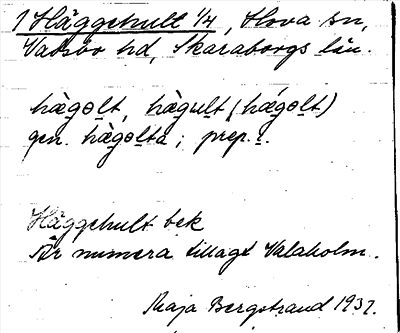 1 Häggehult 1/4, Hova sn,
Vadsbo hd, Skaraborgs län.
hàgo̲lt, hàgult (hágo̲lt)
gen. hàgo̲lta; prep. i.
Häggehult bek
Är numera tillagt Valaholm.
Maja Bergstrand 1937.